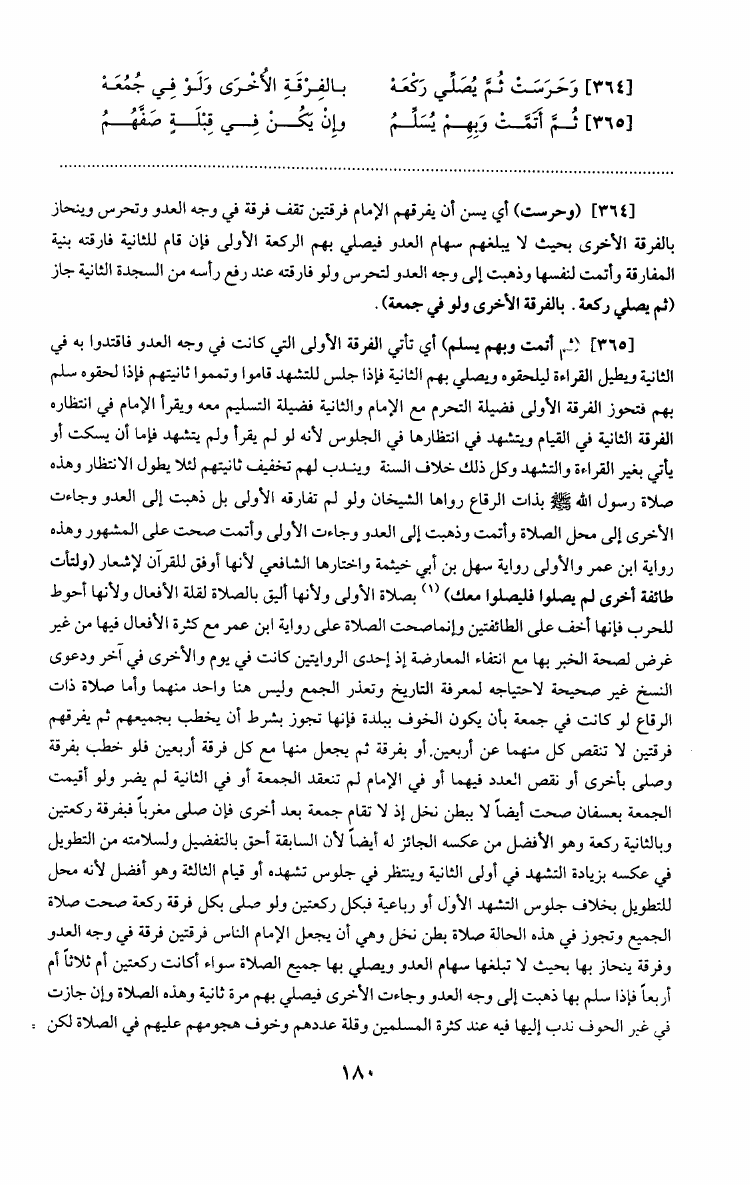 [٣٦٤] وَحَرَسَتْ ثُمَّ يُصَلِّي رَكْعَهْ بِالفِرْقَةِ الأُخْرَى وَلَوْ فِي جُمُعَهْ
[٣٦٥] ثُمَّ أَتَمَّتْ وَبِهِمْ يُسَلِّمُ وإِنْ يَكُنْ فِي قِبْلَةٍ صَفَّهُمُ
[٣٦٤] (وحرست) أي يسن أن يفرقهم الإمام فرقتين تقف فرقة في وجه العدو وتحرس وينحاز
بالفرقة الأخرى بحيث لا يبلغهم سهام العدو فيصلي بهم الركعة الأولى فإن قام للثانية فارقته بنية
المفارقة وأتمت لنفسها وذهبت إلى وجه العدو لتحرس ولو فارقته عند رفع رأسه من السجدة الثانية جاز
(ثم يصلي ركعة. بالفرقة الأخرى ولو في جمعة).
[٣٦٥] (ثم أتمت وبهم يسلم) أي تأتي الفرقة الأولى التي كانت في وجه العدو فاقتدوا به في
الثانية ويطيل القراءة ليلحقوه ويصلي بهم الثانية فإذا جلس للتشهد قاموا وتمموا ثانيتهم فإذا لحقوه سلم
بهم فتحوز الفرقة الأولى فضيلة التحرم مع الإمام والثانية فضيلة التسليم معه ويقرأ الإمام في انتظاره
الفرقة الثانية في القيام ويتشهد في انتظارها في الجلوس لأنه لو لم يقرأ ولم يتشهد فإما أن يسكت أو
يأتي بغير القراءة والتشهد وكل ذلك خلاف السنة ويندب لهم تخفيف ثانيتهم لئلا يطول الانتظار وهذه
صلاة رسول الله ﷺ بذات الرقاع رواها الشيخان ولو لم تفارقه الأولى بل ذهبت إلى العدو وجاءت
الأخرى إلى محل الصلاة وأتمت وذهبت إلى العدو وجاءت الأولى وأتمت صحت على المشهور وهذه
رواية ابن عمر والأولى رواية سهل بن أبي خيثمة واختارها الشافعي لأنها أوفق للقرآن لإشعار (ولتأت
طائفة أخرى لم يصلوا فليصلوا معك) (١) بصلاة الأولى ولأنها أليق بالصلاة لقلة الأفعال ولأنها أحوط
للحرب فإنها أخف على الطائفتين وإنماصحت الصلاة على رواية ابن عمر مع كثرة الأفعال فيها من غير
غرض لصحة الخبر بها مع انتفاء المعارضة إذ إحدى الروايتين كانت في يوم والأخرى في آخر ودعوى
النسخ غير صحيحة لاحتياجه لمعرفة التاريخ وتعذر الجمع وليس هنا واحد منهما وأما صلاة ذات
الرقاع لو كانت في جمعة بأن يكون الخوف ببلدة فإنها تجوز بشرط أن يخطب بجميعهم ثم يفرقهم
فرقتين لا تنقص كل منهما عن أربعين. أو بفرقة ثم يجعل منها مع كل فرقة أربعين فلو خطب بفرقة
وصلى بأخرى أو نقص العدد فيهما أو في الإمام لم تنعقد الجمعة أو في الثانية لم يضر ولو أقيمت
الجمعة بعسفان صحت أيضاً لا ببطن نخل إذ لا تقام جمعة بعد أخرى فإن صلى مغرباً فبفرقة ركعتين
وبالثانية ركعة وهو الأفضل من عكسه الجائز له أيضاً لأن السابقة أحق بالتفضيل ولسلامته من التطويل
في عكسه بزيادة التشهد في أولى الثانية وينتظر في جلوس تشهده أو قيام الثالثة وهو أفضل لأنه محل
للتطويل بخلاف جلوس التشهد الأول أو رباعية فبكل ركعتين ولو صلى بكل فرقة ركعة صحت صلاة
الجميع وتجوز في هذه الحالة صلاة بطن نخل وهي أن يجعل الإمام الناس فرقتين فرقة في وجه العدو
وفرقة ينحاز بها بحيث لا تبلغها سهام العدو ويصلي بها جميع الصلاة سواء أكانت ركعتين أم ثلاثاً أم
أربعاً فإذا سلم بها ذهبت إلى وجه العدو وجاءت الأخرى فيصلي بهم مرة ثانية وهذه الصلاة وإن جازت
في غير الحوف ندب إليها فيه عند كثرة المسلمين وقلة عددهم وخوف هجومهم عليهم في الصلاة لكن =
١٨٠